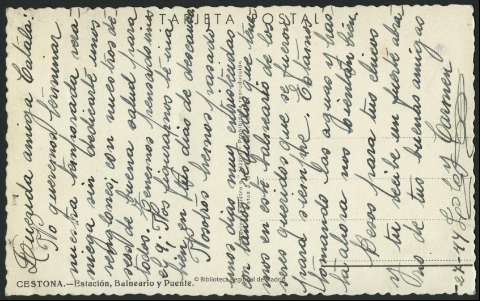 TARJETA POSTAL
amiga Catali:
No queremos terminar
nuestra temporada vera
niega sin dedicarte unos
renglones con nuestros de
seos de buena salud para
todos. Tenemos pensado ir
el 9. Nos figuramos te irá
bien en tus días de descanso
Nosotros hemos pasado
unos días muy entristecidas
con tantos recuerdos que tene
mos en este balneario de los
seres queridos que se fueron
para siempre. Estamos
tomando las aguas y has
ta ahora nos sientan bien
Besos para tus chicos
y tu recibe un fuerte abra
zo de tus buenas amigas
y Carmen
CESTONA.—Estación, Balneario y Puente.
© Biblioteca Regional de Madrid